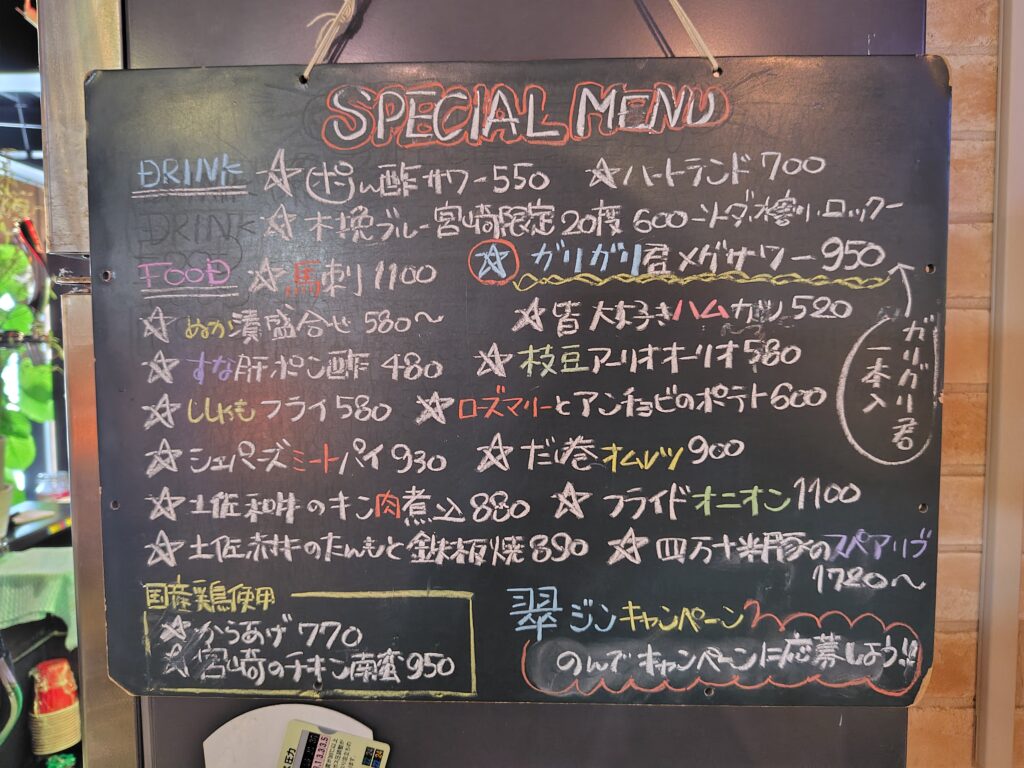 SPECIAL MENU
DRINK ☆ 酢サワー 550 ☆ ハートランド 700
DRINK ☆ 木挽ブルー 宮崎限定 20度 600 ソーダ 水割り ロック
FOOD ☆ 馬刺 1100 ☆ ガリガリ君メガサワー 950
☆ ぬか漬盛合せ 580〜 ☆ 皆大好きハムカツ 520
☆ すな肝ポン酢 480 ☆ 枝豆アーリオオーリオ 580
☆ ししゃもフライ 580 ☆ ローズマリーとアンチョビのポテト 600
☆ シェパーズミートパイ 930 ☆ だし巻オムレツ 900
☆ 土佐和牛のキン肉煮込 880 ☆ フライドオニオン 1100
☆ 土佐赤牛のたんもと鉄板焼 890 ☆ 四万十米豚のスペアリブ
1720〜
ガリガリ君
一本入
国産鶏使用
☆ からあげ 770
☆ 宮崎のチキン南蛮 950
翠ジンキャンペーン
のんでキャンペーンに応募しよう!!